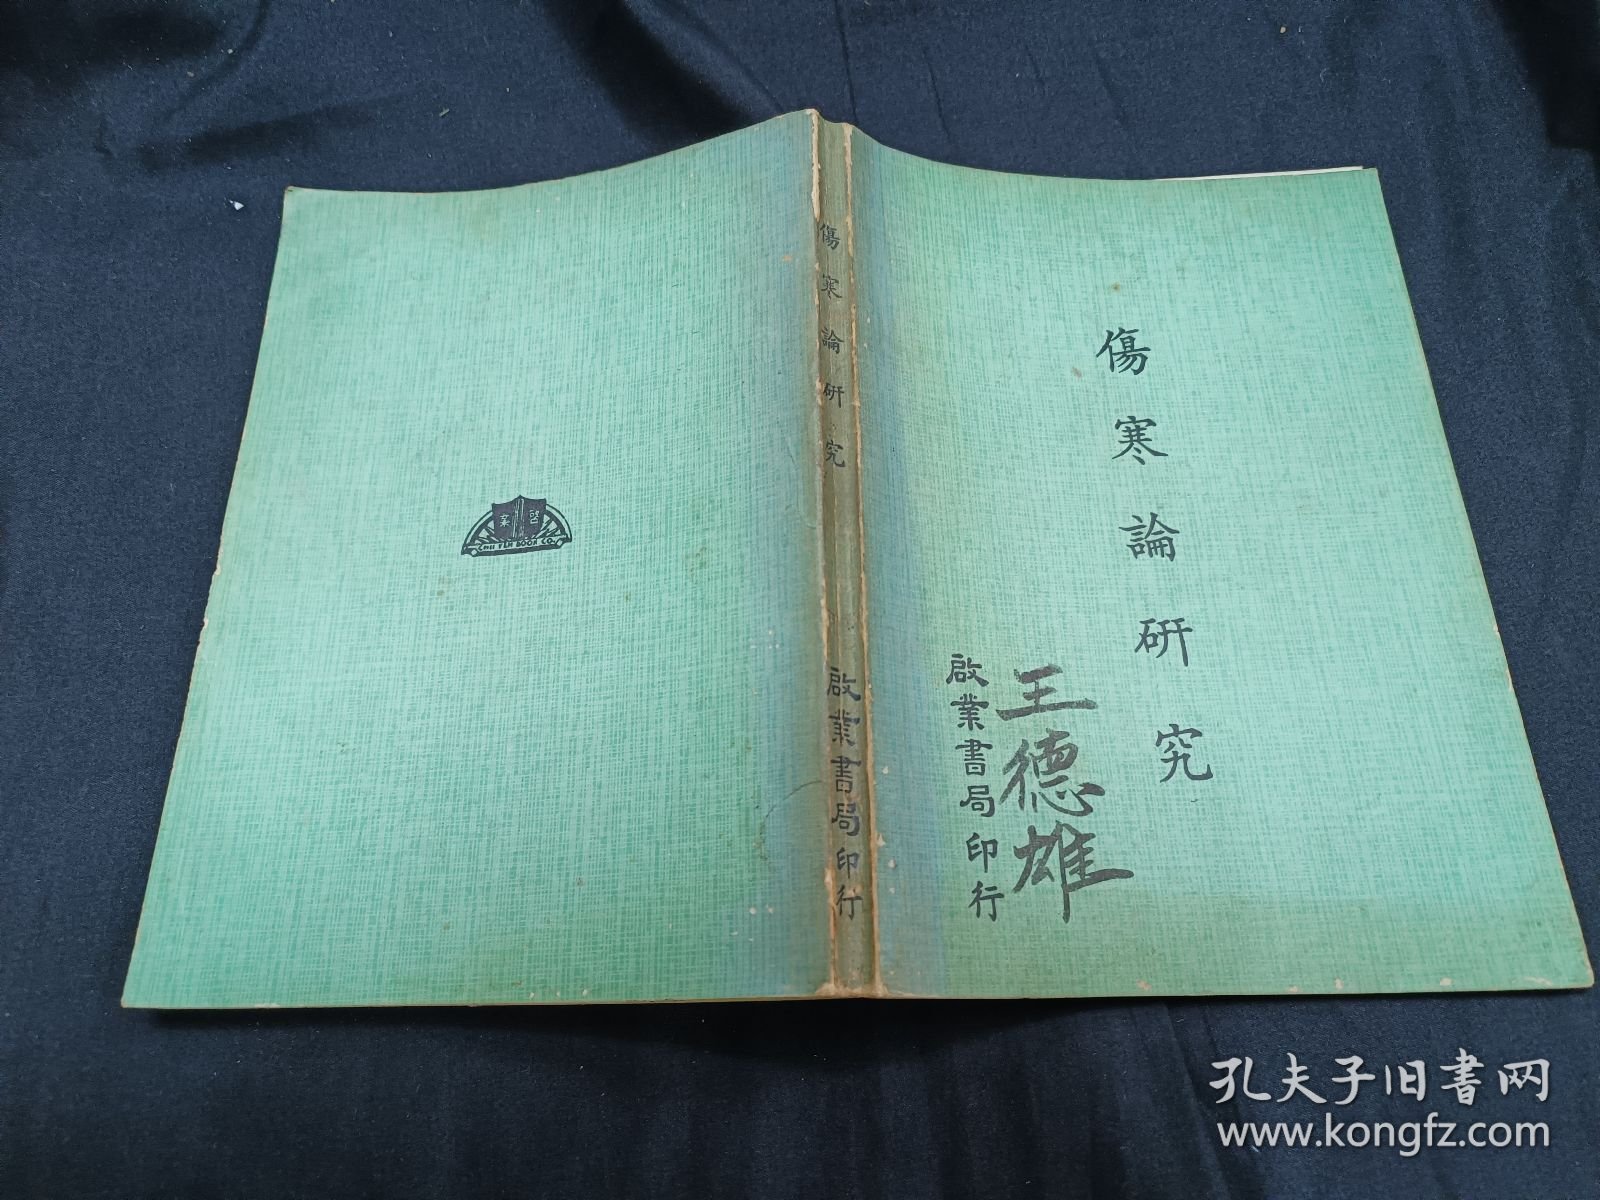 傷寒論研究
王德雄
啟業書局印行
傷寒論研究
啟業書局印行
啟業
CHII YEH BOOK CO.
孔夫子旧书网
www.kongfz.com